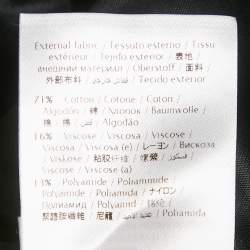 External fabric / Tessuto esterno / Tissu
extérieur / Tejido exterior / 表地 /
внешний материал / Oberstoff / 面料 /
外部布料 / قماش خارجي / Tecido exterior
71% Cotton / Cotone / Coton /
Algodón / Хлопок / Baumwolle /
棉 / 棉 / قطن / Algodão
16% Viscose / Viscosa / Viscose /
Viscosa / Viscosa (e) / レーヨン / Вискоза
/ Viskose / 粘胶纤维 / 嫘縈 / فسكوز /
Viscose / Viscose (a)
13% Polyamide / Poliammide
/ Polyamide / Poliamida / ナイロン /
Полиамид / Polyamid /
聚醯胺纖維 / 尼龍 / Poliamida